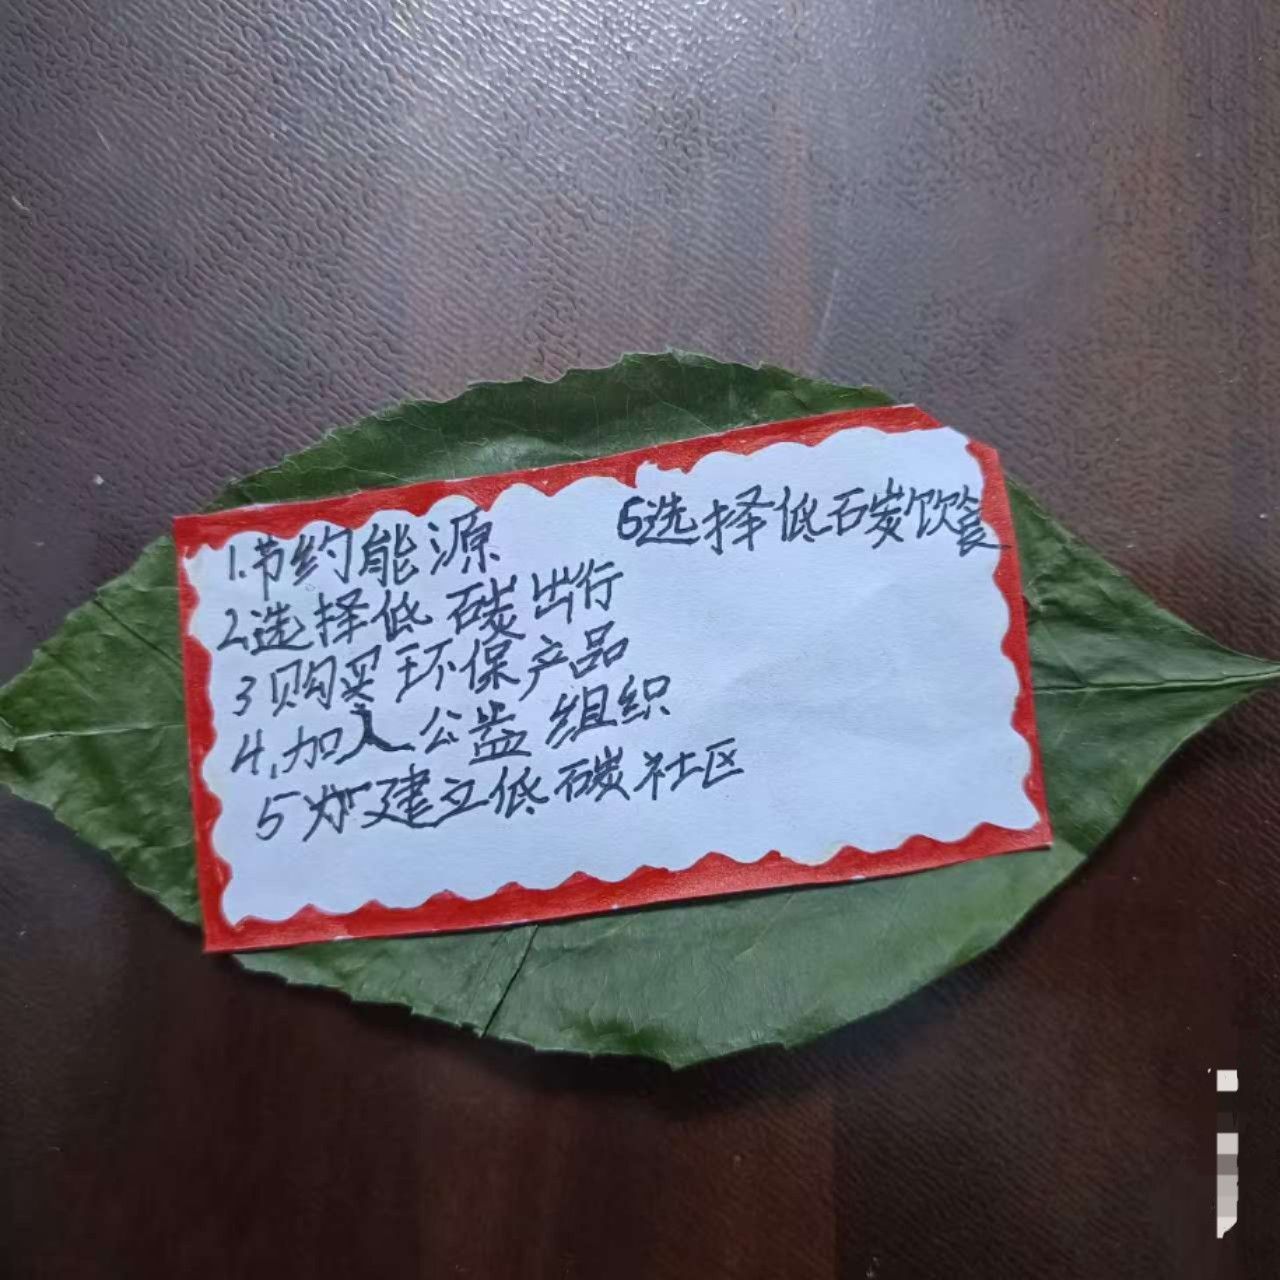 1.节约能源
2.选择低碳出行
3购买环保产品
4.加入公益组织
5建立低碳社区
6选择低碳饮食